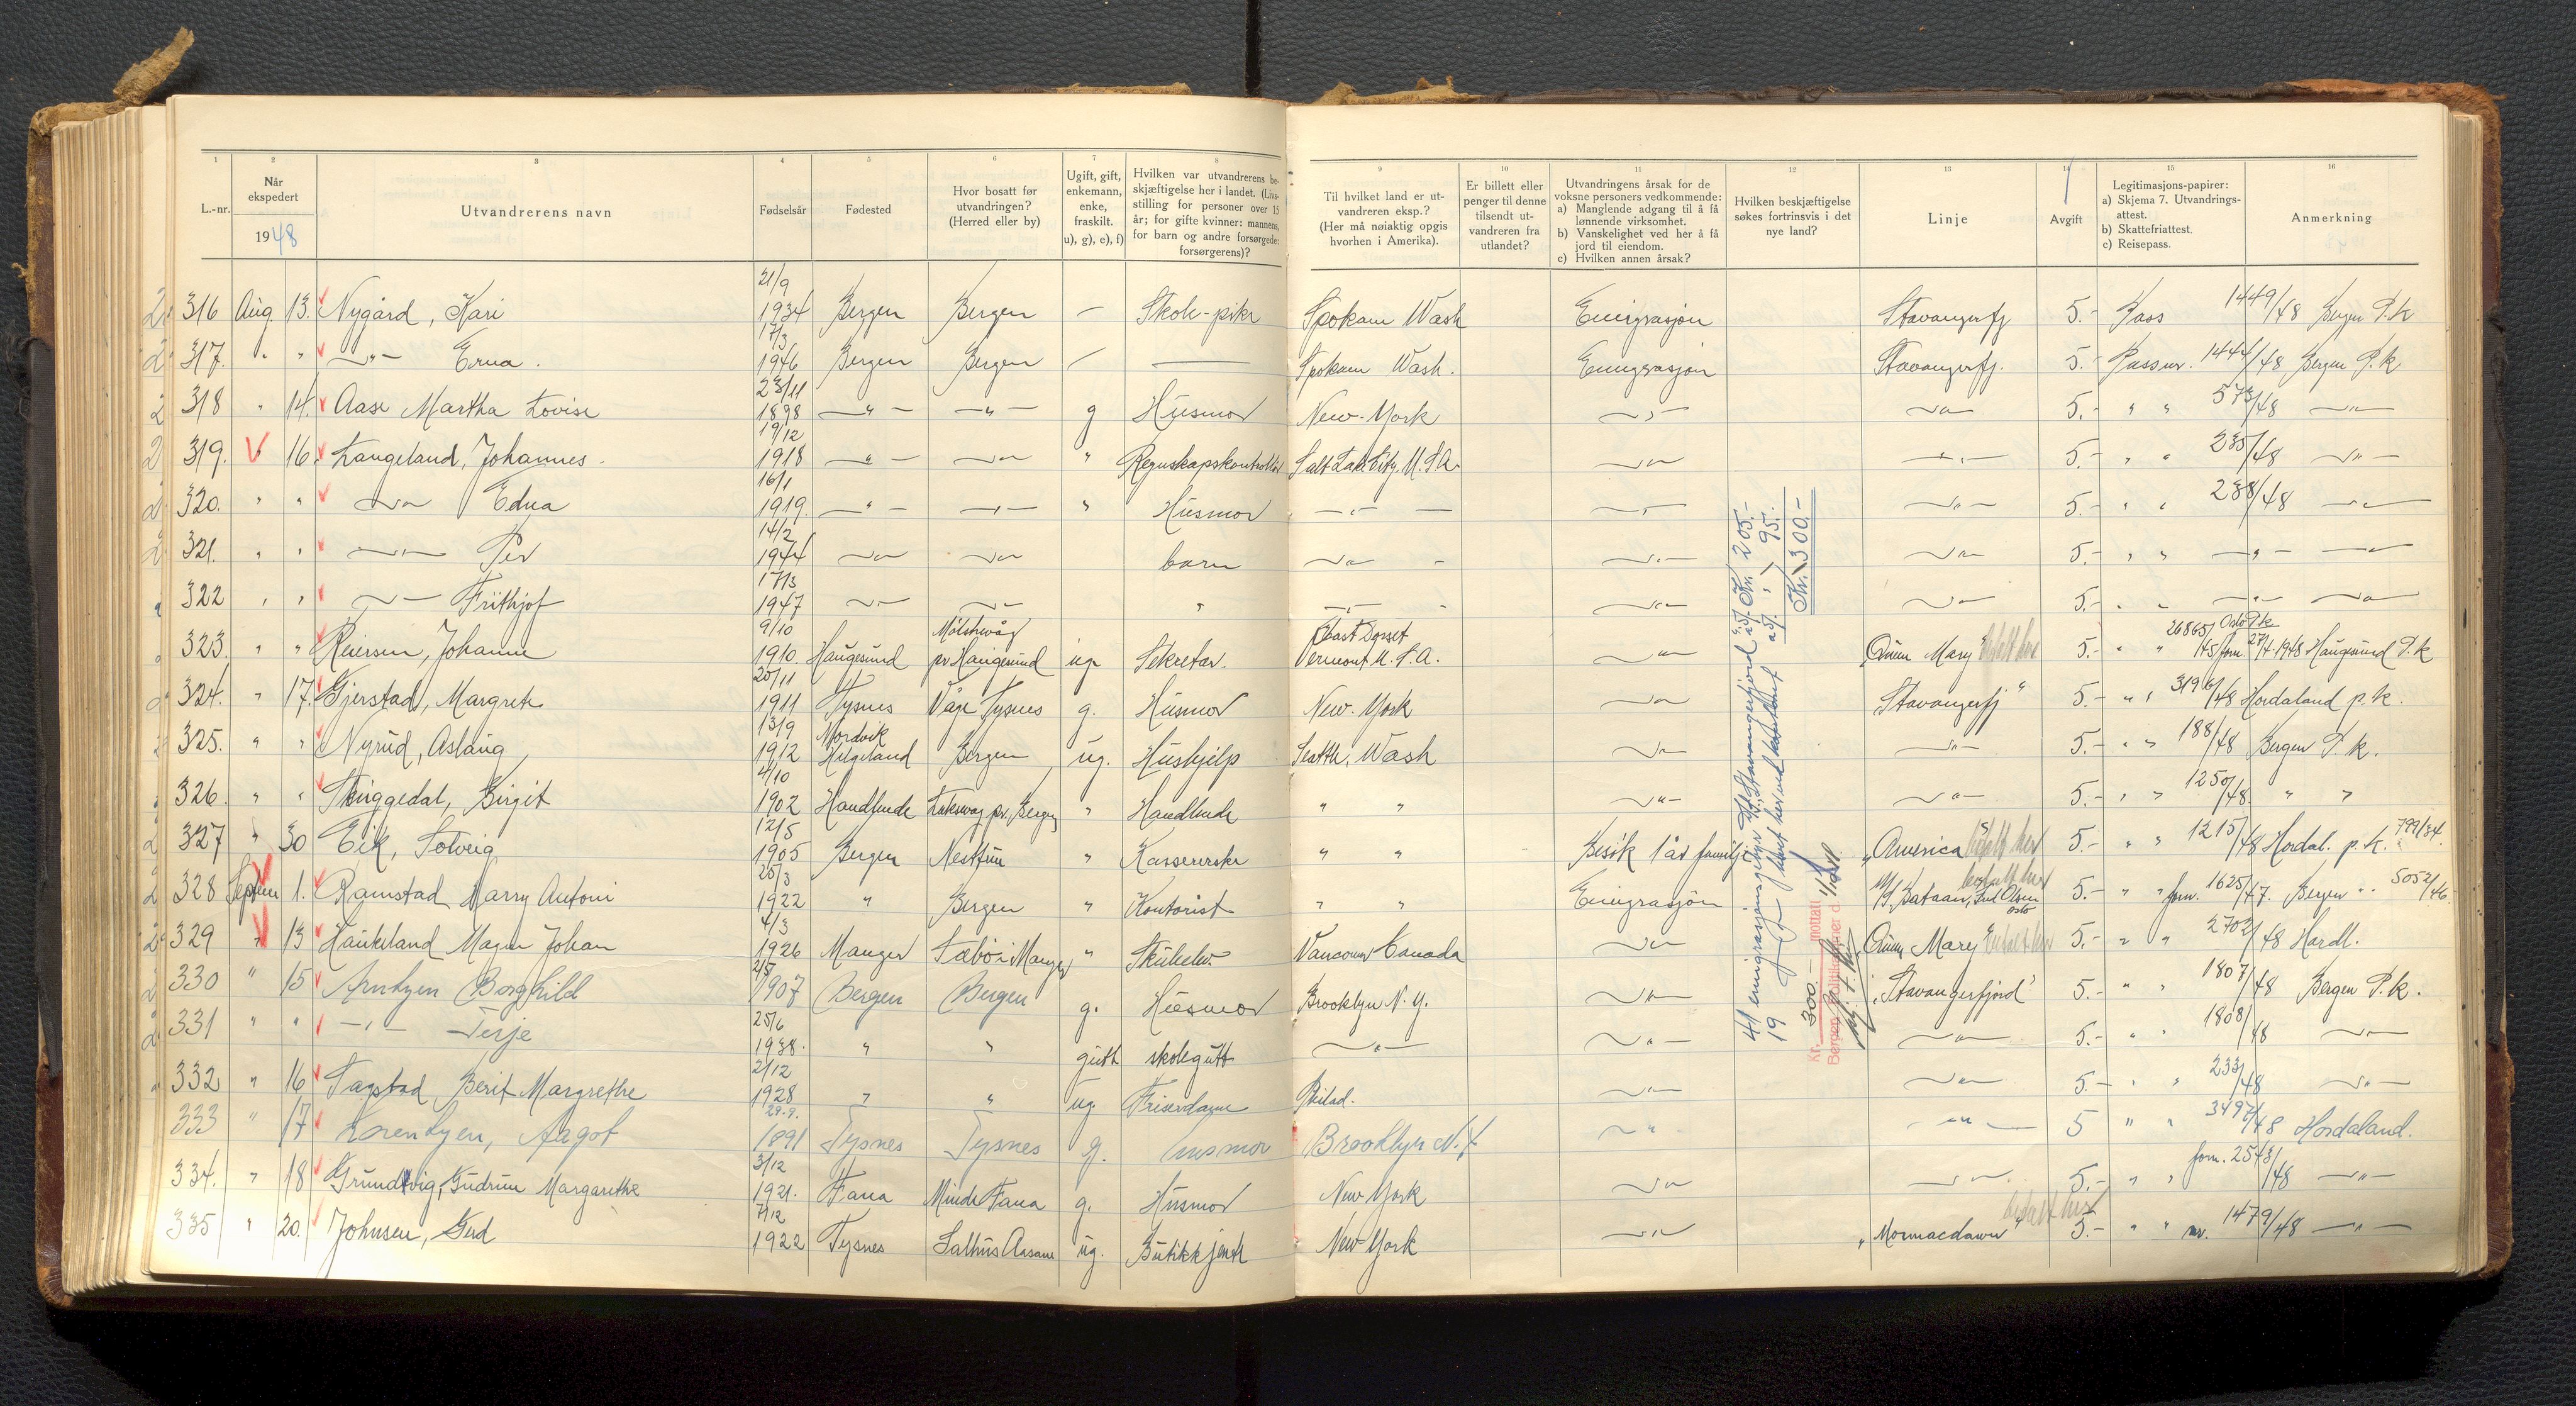 1 2 3 4 5 6 7 8 9 10 11 12 13 14 15 16
L.-nr. Når ekspedert 1948 Utvandrerens navn Fødselsår Fødested Hvor bosatt før utvandringen? (Herred eller by) Ugift, gift, enkemann, enke, fraskilt. u), g), e), f) Hvilken var utvandrerens beskjæftigelse her i landet. (Livsstilling for personer over 15 år; for gifte kvinner: mannens, for barn og andre forsørgede: forsørgerens)? Til hvilket land er utvandreren eksp.? (Her må nøiaktig opgis hvorhen i Amerika). Er billett eller penger til denne tilsendt utvandreren fra utlandet? Utvandringens årsak for de voksne personers vedkommende: a) Manglende adgang til å få lønnende virksomhet. b) Vanskelighet ved her å få jord til eiendom. c) Hvilken annen årsak? Hvilken beskjæftigelse søkes fortrinsvis i det nye land? Linje Avgift Legitimasjons-papirer: a) Skjema 7. Utvandringsattest. b) Skattefriattest. c) Reisepass. Anmerkning
316 Aug. 13. Nygård, Kari 21/9 1934 Bergen Bergen — Skole-pike Spokane Wash Emigrasjon Stavangerfj 5.- Pass 1449/48 Bergen P.k
317. " " —"— Erna. 17/3 1946 Bergen Bergen — — Spokane Wash. Emigrasjon Stavangerfj. 5.- Pass nr. 1444/48 Bergen P.k
318 " 14. Aase Martha Lovise 23/11 1898 —"— —"— g Husmor New-York —"— —"— 5.- " " 573/48 —"—
319. V 16. Langeland, Johannes. 19/12 1918 —"— —"— " Regnskapskontrollør Salt Lake City, U.S.A. —"— —"— 5.- " " 235/48 —"—
320. " " —"— Edna 16/1 1919. —"— —"— " Husmor —"— —"— —"— 5.- " " 238/48 —"—
321. " " —"— Per 14/2 1944 —"— —"— barn —"— —"— —"— 5.- " " —"— —"—
322 " " —"— Frithjof 17/3 1947 —"— —"— " —"— —"— —"— 5.- " " —"— —"—
323. " " Reiersen, Johanne 9/10 1910. Haugesund pr Haugesund ug. Sekretær. East Dorset Vermont U.S.A. —"— Queen Mary betalt her 5.- " " 26865/45 forn. 27/4-1948 Oslo P.k Haugesund P.k
324. " 17. Gjerstad, Margrete 20/11 1911 Tysnes Våge Tysnes g. Husmor New-York —"— Stavangerfj" 5.- " " 3196/48 Hordaland p.k.
325. " " Nyrud, Aslaug 13/9 1912 Helgeland Bergen ug. Hushjelp Seattle, Wash —"— —"— 5.- " " 188/48 Bergen P.k.
326. " " Skuggedal, Birgit 4/10 1902 Laksevåg pr. Bergen " " " —"— —"— 5.- " " 1250/48. " "
327 " 30 Eik, Solveig 12/5 1905 Bergen Nesttun " Kassererske " " Besøk 1 år familje "America betalt her 5.- " " 1215/48 Hordal. p.k. 799/34.
328 Septem 1. Ramstad Harry Antoni 25/3 1922 " Bergen " Kontorist " " Emigrasjon M/S Bataan, Fred Olsen Oslo betalt her 5.- " " forn. 1625/47. Bergen " " 5052/46.
329 " 13 Haukeland Magne Johan 4/3 1926 Manger Sæbø i Manger " Skuleelev. Vancouver Canada —"— Queen Mary betalt her 5.- " " 2702/48 Hordl.
330 " 15 Arntzen Borghild 2/5 1907 Bergen Bergen g. Husmor Brooklyn N.Y. —"— "Stavangerfjord" 5.- " " 1807/48 Bergen P.k.
331 " " —"— Terje 25/6 1938. " " gutt skolegutt —"— —"— —"— 5.- " " 1808/48 —"—
332 " 16 Tagstad Berit Margrethe 2/12 1928 " " ug. Friserdame Philad. —"— —"— 5.- " " 233/48 —"—
333 " 17 Lorentzen, Aagot 29.9. 1891 Tysnes Tysnes g. husmor Brooklyn N.Y —"— —"— 5 " " 3497/48 Hordaland.
334. " 18 Grundtvig, Gudrun Margarethe 3/12 1921. Fana Minde Fana g. Husmor New York —"— —"— 5.- " " forn. 2543/48 —"—
335 " 20. Johnsen, Gerd 7/12 1922 Tysnes Salhus Åsane ug. Butikkjente New York —"— "Mormacdawn" betalt her 5.- " " nr. 1479/48 —"—
41 emigrasjonsgebyr "Stavangerfjord" a 5/- Kr. 205.-
19 —"— betalt her ved kontoret a 5/- " 95.-
Kr. 300.-
Kr. 300.— mottatt
Bergen Politikammer d.